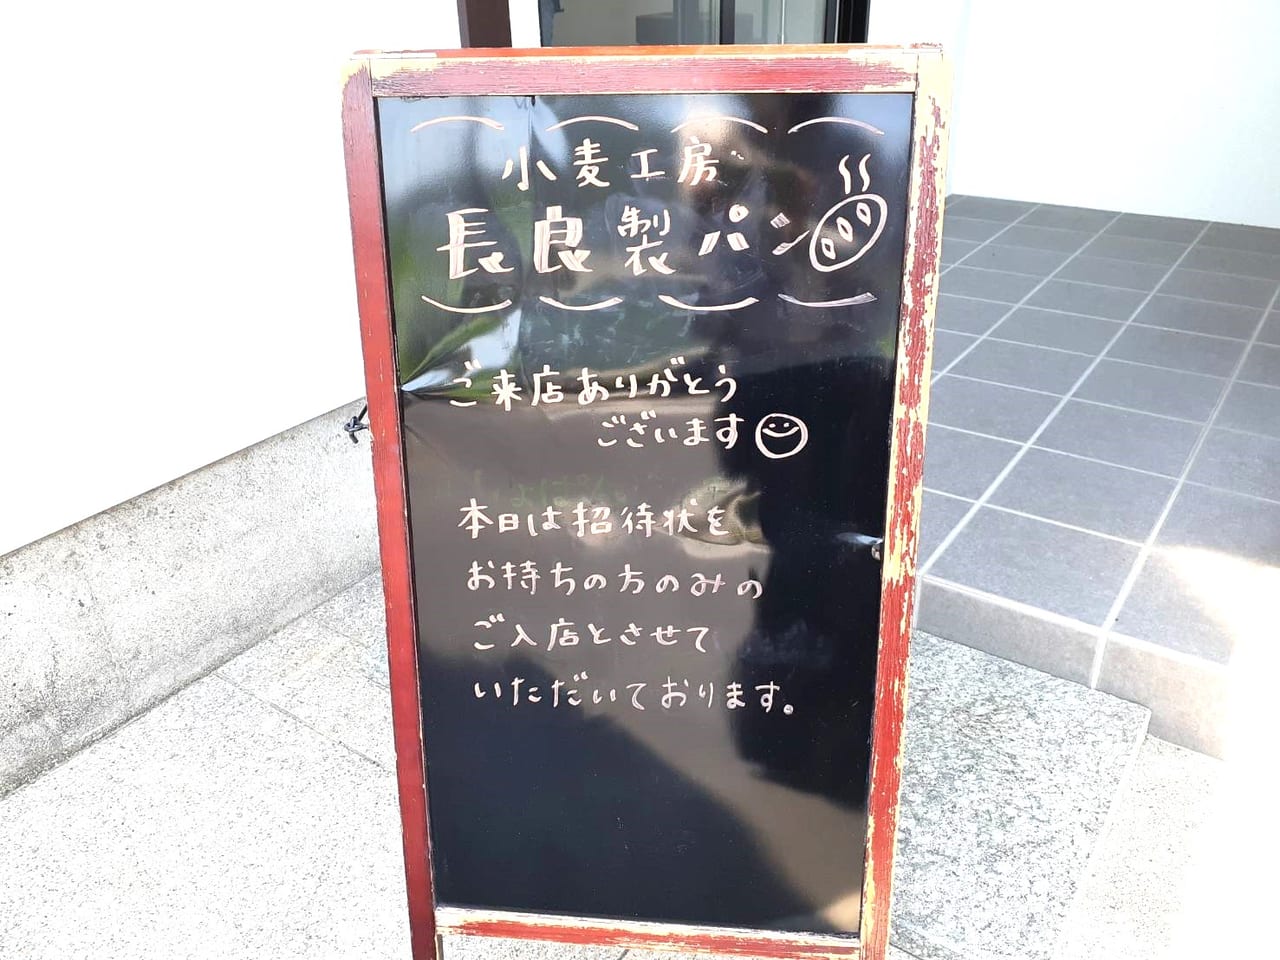 小麦工房
長良製パン
ご来店ありがとう
ございます
本日は招待状を
お持ちの方のみの
ご入店とさせて
いただいております。